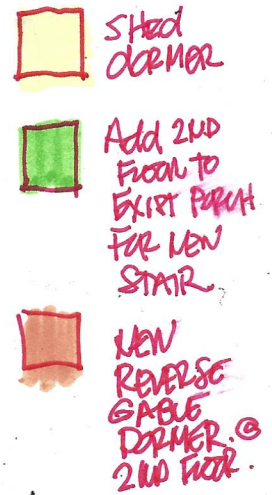 SHED
DORMER
Add 2ND
FLOOR TO
EXIST PORCH
FOR NEW
STAIR
NEW
REVERSE
GABLE
DORMER. @
2ND FLOOR.